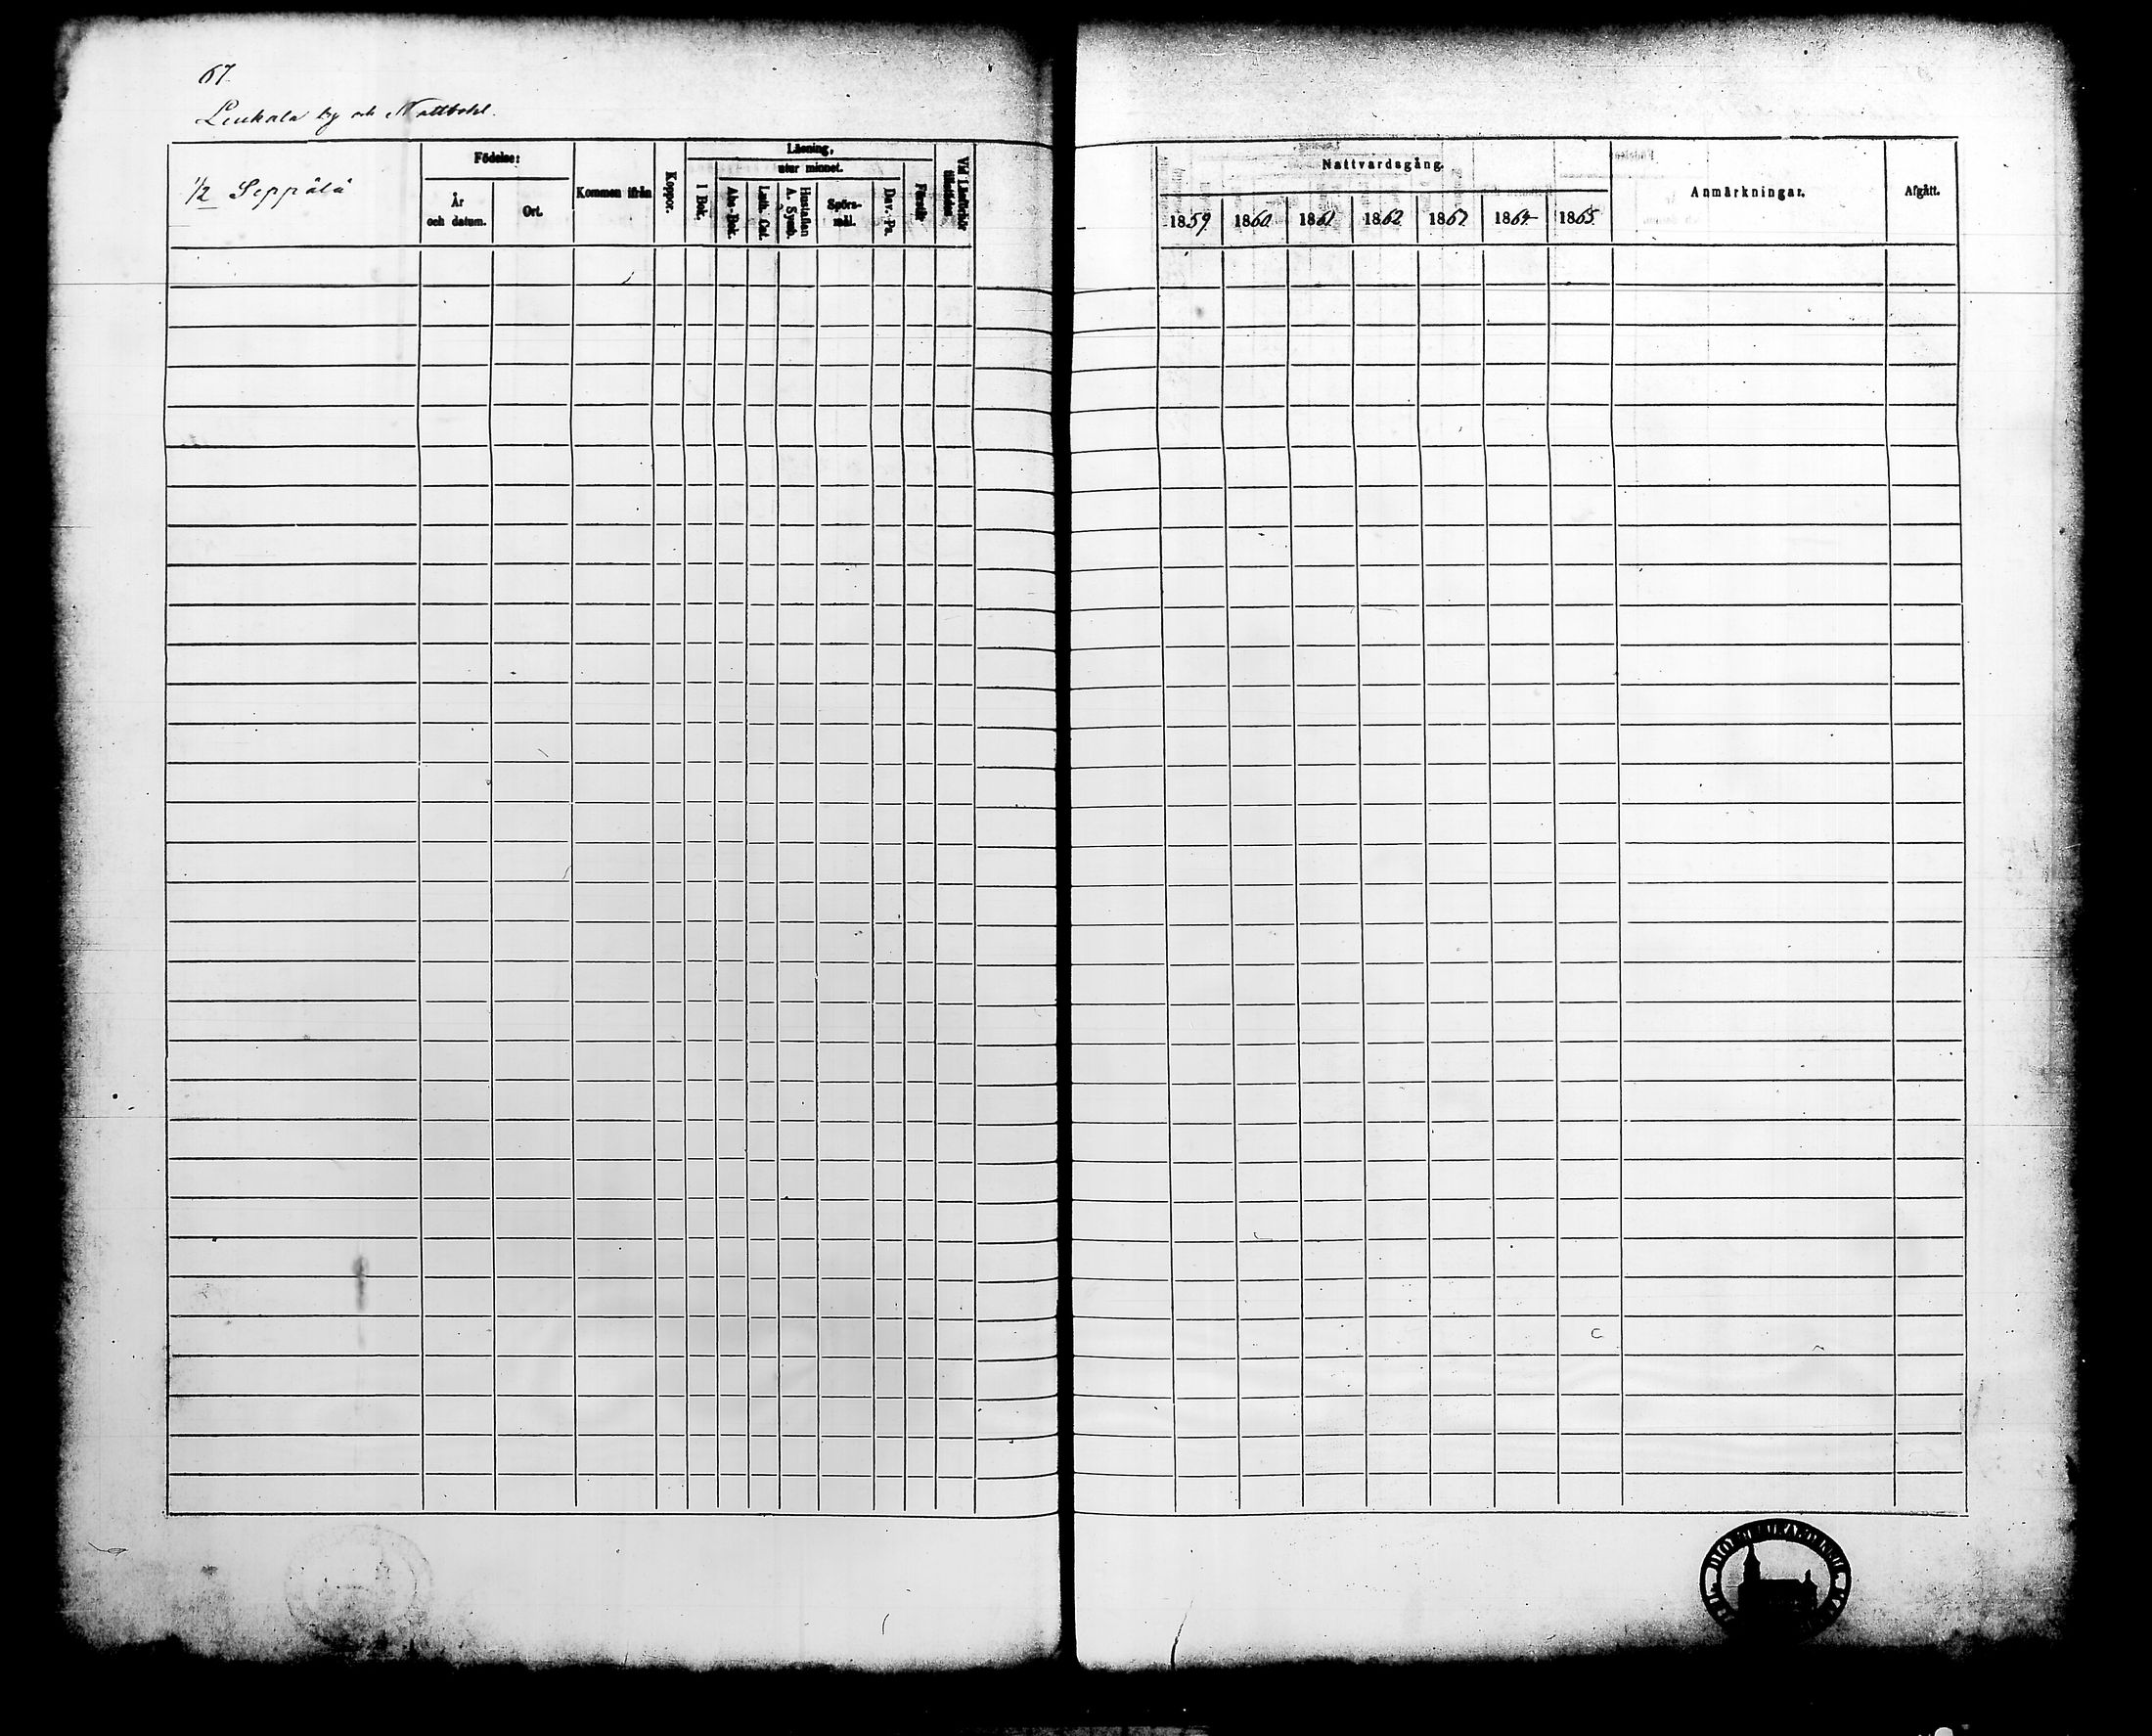 67.
Leukala by och Nattbohl.
1/2 Seppälä
Födelse:
År
och datum.
Ort.
Kommen ifrån
Koppor.
Läsning,
utur minnet.
I Bok.
Abc-Bok.
Luth. Cat.
Hustaflan
A. Symb.
Spörs-
mål.
Dav.-Ps.
Förstår
Vid Läsförhör
Nattvardsgång.
1859. 1860. 1861. 1862. 1863. 1864. 1865.
Anmärkningar.
Afgått.